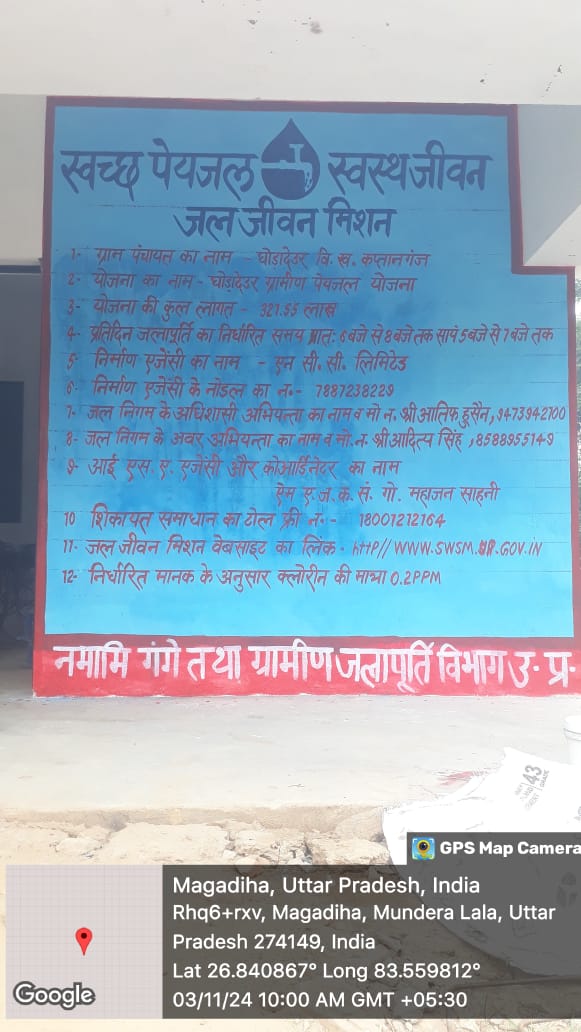 स्वच्छ पेयजल स्वस्थ जीवन
जल जीवन मिशन
1- ग्राम पंचायत का नाम - घोड़ादेउर वि. ख. कप्तानगंज
2- योजना का नाम - घोड़ादेउर ग्रामीण पेयजल योजना
3- योजना की कुल लागत - 321.55 लाख
4- प्रतिदिन जलापूर्ति का निर्धारित समय प्रात: 6 बजे से 8 बजे तक सायं 5 बजे से 7 बजे तक
5 निर्माण एजेंसी का नाम - एन सी. सी. लिमिटेड
6- निर्माण एजेंसी के नोडल का न.- 7887238229
7- जल निगम के अधिशासी अभियन्ता का नाम व मो. न. श्री आतिफ हुसैन, 9473942700
8- जल निगम के अवर अभियन्ता का नाम व मो. न. श्री आदित्य सिंह, 8588955149
9- आई एस. ए. एजेंसी और कोआर्डिनेटर का नाम
ऐम ए. ज. क. सं. गो. महाजन साहनी
10 शिकायत समाधान का टोल फ्री न.- 18001212164
11- जल जीवन मिशन वेबसाइट का लिंक - HTTP//WWW.SWSM.UP.GOV.IN
12- निर्धारित मानक के अनुसार क्लोरीन की मात्रा 0.2PPM
नमामि गंगे तथा ग्रामीण जलापूर्ति विभाग उ- प्र-
43
GRADE
GPS Map Camera
Magadiha, Uttar Pradesh, India
Rhq6+rxv, Magadiha, Mundera Lala, Uttar
Pradesh 274149, India
Lat 26.840867° Long 83.559812°
03/11/24 10:00 AM GMT +05:30
Google